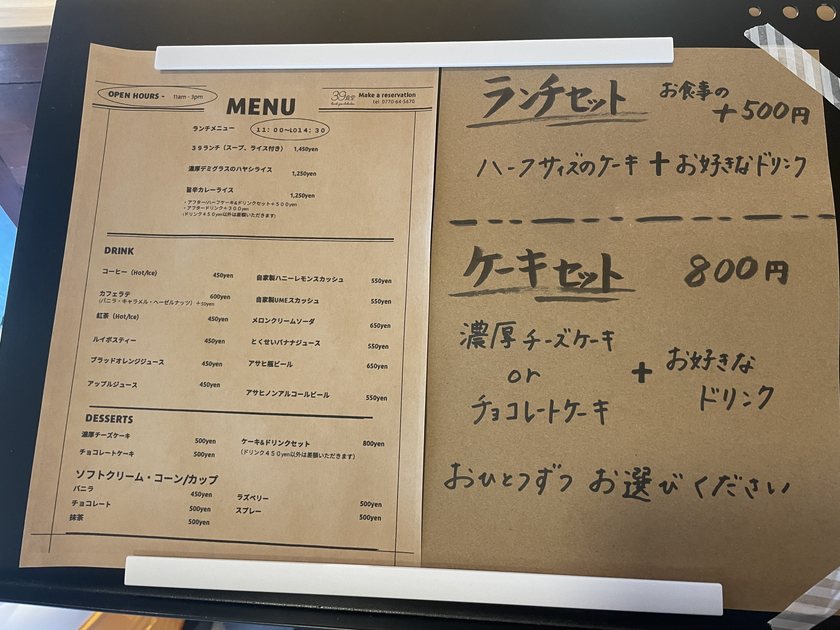 OPEN HOURS - 11am - 3pm
MENU
39食堂
Make a reservation
tel 0770-64-5670
ランチメニュー
11:00~LO14:30
39ランチ(スープ、ライス付き) 1,450yen
濃厚デミグラスのハヤシライス 1,250yen
旨辛カレーライス 1,250yen
・アフターハーフケーキ&ドリンクセット+500yen
・アフタードリンク+300yen
(ドリンク450yen以外は差額いただきます)
DRINK
コーヒー(Hot/Ice) 450yen
カフェラテ 600yen
(バニラ・キャラメル・ヘーゼルナッツ)+50yen
紅茶(Hot/Ice) 450yen
ルイボスティー 450yen
ブラッドオレンジジュース 450yen
アップルジュース 450yen
自家製ハニーレモンスカッシュ 550yen
自家製UMEスカッシュ 550yen
メロンクリームソーダ 650yen
とくせいバナナジュース 550yen
アサヒ瓶ビール 650yen
アサヒノンアルコールビール 550yen
DESSERTS
濃厚チーズケーキ 500yen
チョコレートケーキ 500yen
ケーキ&ドリンクセット 800yen
(ドリンク450yen以外は差額いただきます)
ソフトクリーム・コーン/カップ
バニラ 450yen
チョコレート 500yen
抹茶 500yen
ラズベリー 500yen
スプレー 500yen
ランチセット お食事の
+500円
ハーフサイズのケーキ+お好きなドリンク
ケーキセット 800円
濃厚チーズケーキ
or
チョコレートケーキ
+ お好きな
ドリンク
おひとつずつ お選びください